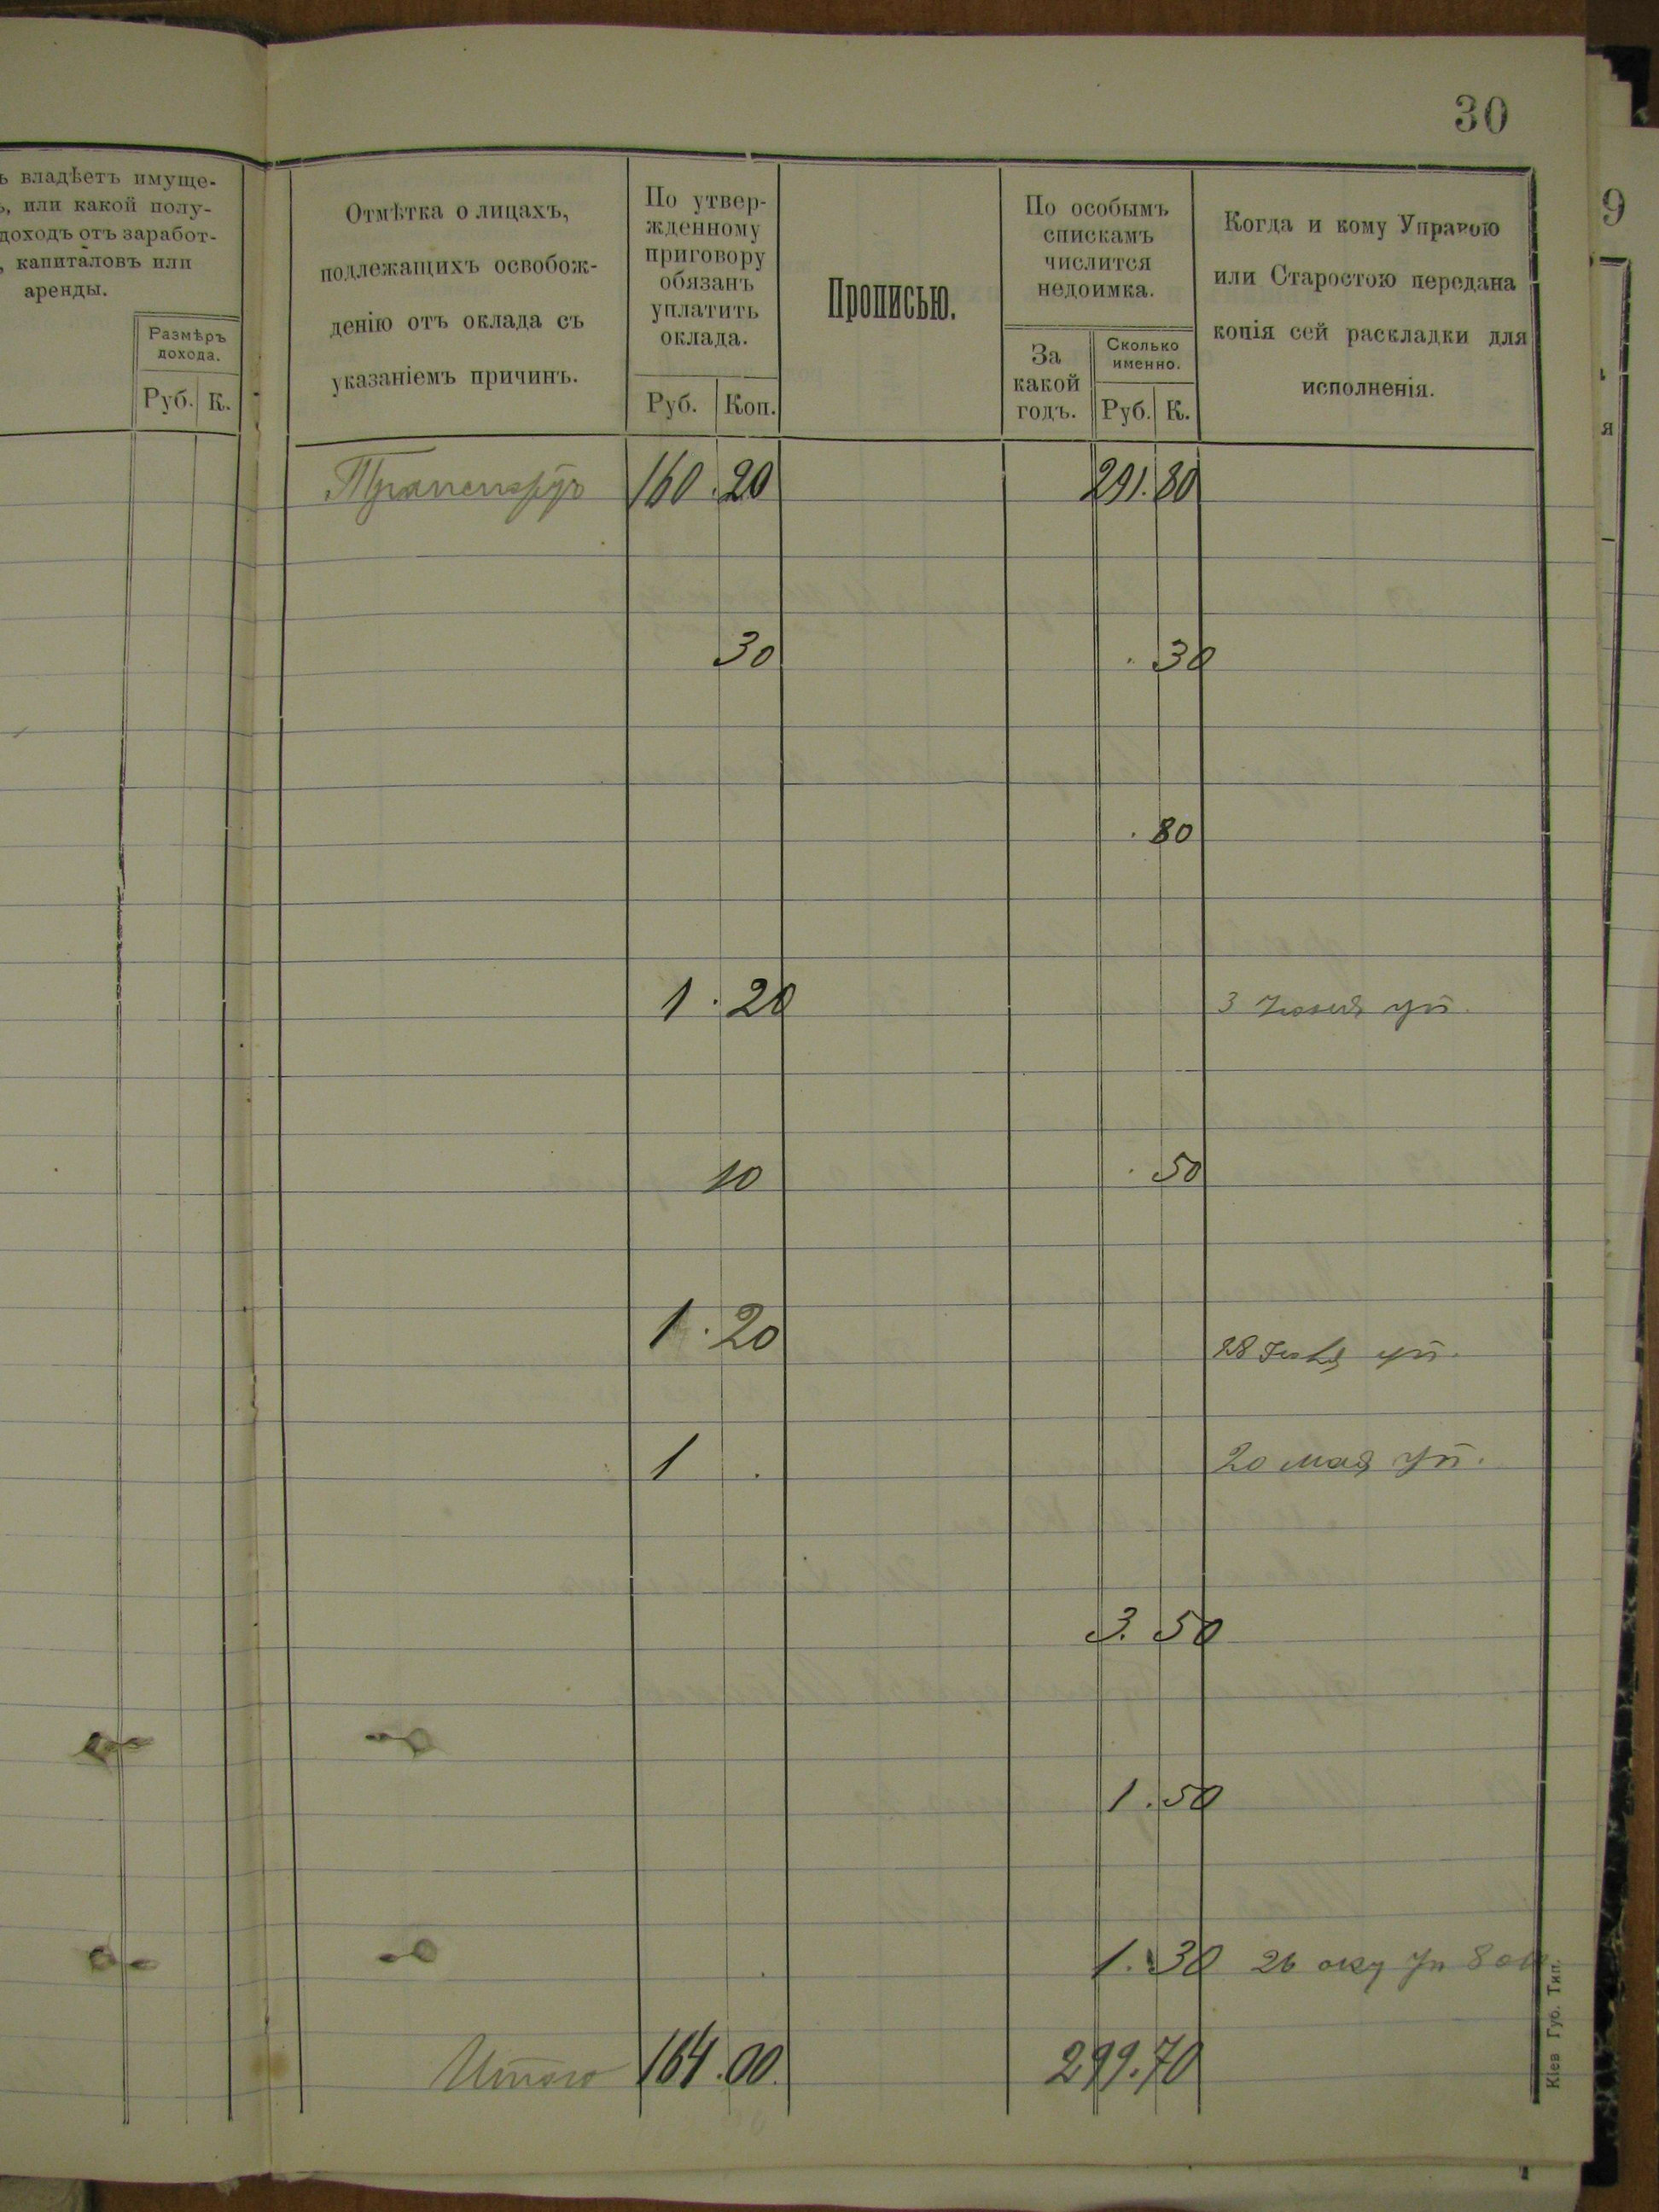 30
ъ владѣетъ имуще-
ъ, или какой полу-
доходъ отъ заработ-
, капиталовъ или
аренды.
Размѣръ
дохода.
Руб. К.
Отмѣтка о лицахъ,
подлежащихъ освобож-
денію отъ оклада съ
указаніемъ причинъ.
По утвер-
жденному
приговору
обязанъ
уплатить
оклада.
Руб. Коп.
Прописью.
По особымъ
спискамъ
числится
недоимка.
За
какой
годъ.
Сколько
именно.
Руб. К.
Когда и кому Управою
или Старостою передана
копія сей раскладки для
исполненія.
9
я
160.20 291.80
30 . 30
. 80
1.20 3 Іюня уп.
10 . 50
1.20 28 уп.
1 . 20 мая уп.
3.50
1.50
1.30 26
Итого 164.00. 299.70
Кіев Губ. Тип.